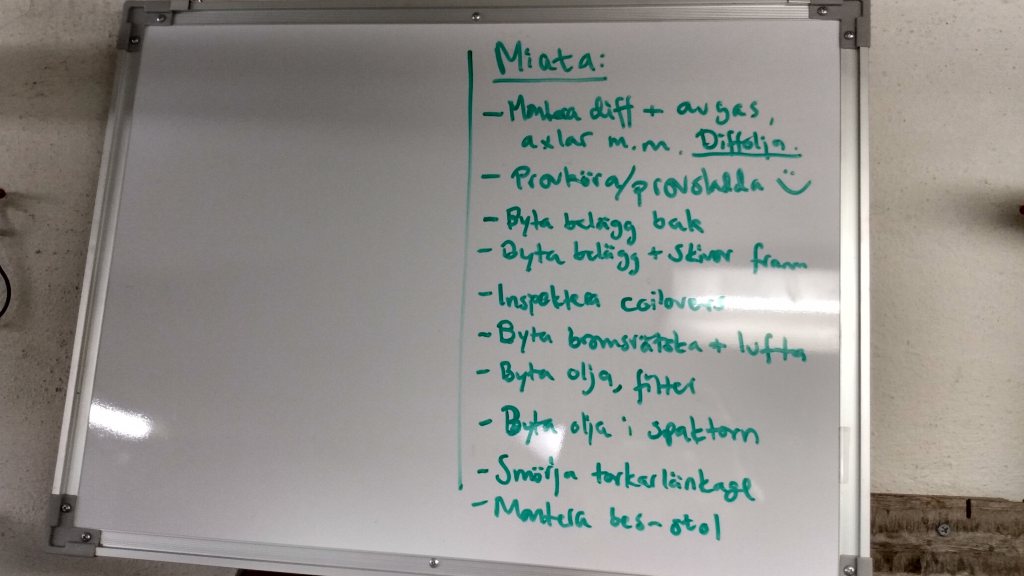 Miata:
- Montera diff + avgas,
axlar m.m. Diffolja.
- Provköra/provsladda
- Byta belägg bak
- Byta belägg + skivor fram
- Inspektera coilovers
- Byta bromsvätska + lufta
- Byta olja, filter
- Byta olja i spaktorn
- Smörja torkarlänkage
- Montera bes-stol